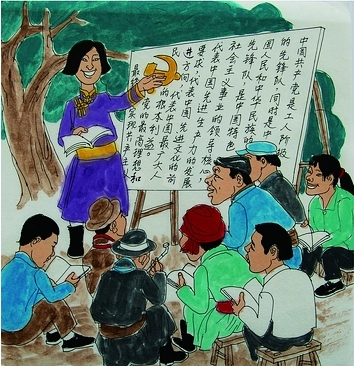 中国共产党是工人阶级
的先锋队,同时是中
国人民和中华民族的
先锋队,是中国特色
社会主义事业的领导核心
代表中国先进生产力的发展
要求,代表中国先进文化的前
进方向,代表中国最广大人
民的根本利益。
党的最高理想和
最终 实现共产主